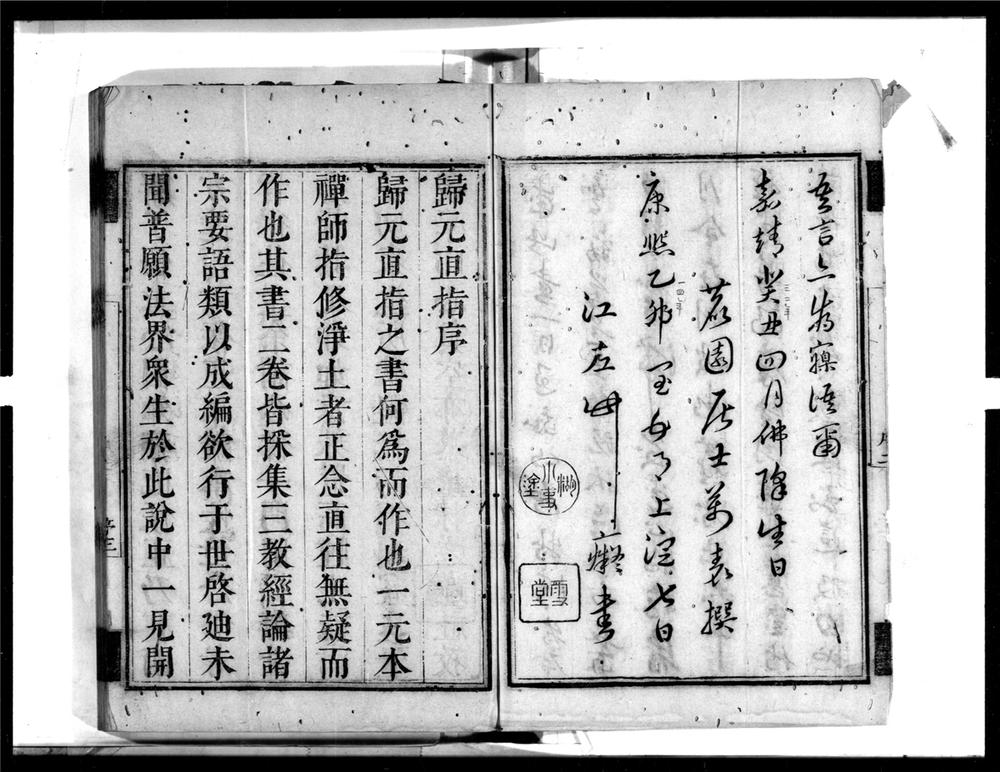 吾言亦為寐語爾
嘉靖癸丑四月佛降生日
鹿園居士萬表撰
康熙乙卯 月上浣七日
江左 癡書
雪堂
歸元直指序
歸元直指之書何為而作也一元本
禪師指修淨土者正念直往無疑而
作也其書二卷皆採集三教經論諸
宗要語類以成編欲行于世啓廸未
聞普願法界衆生於此說中一見開